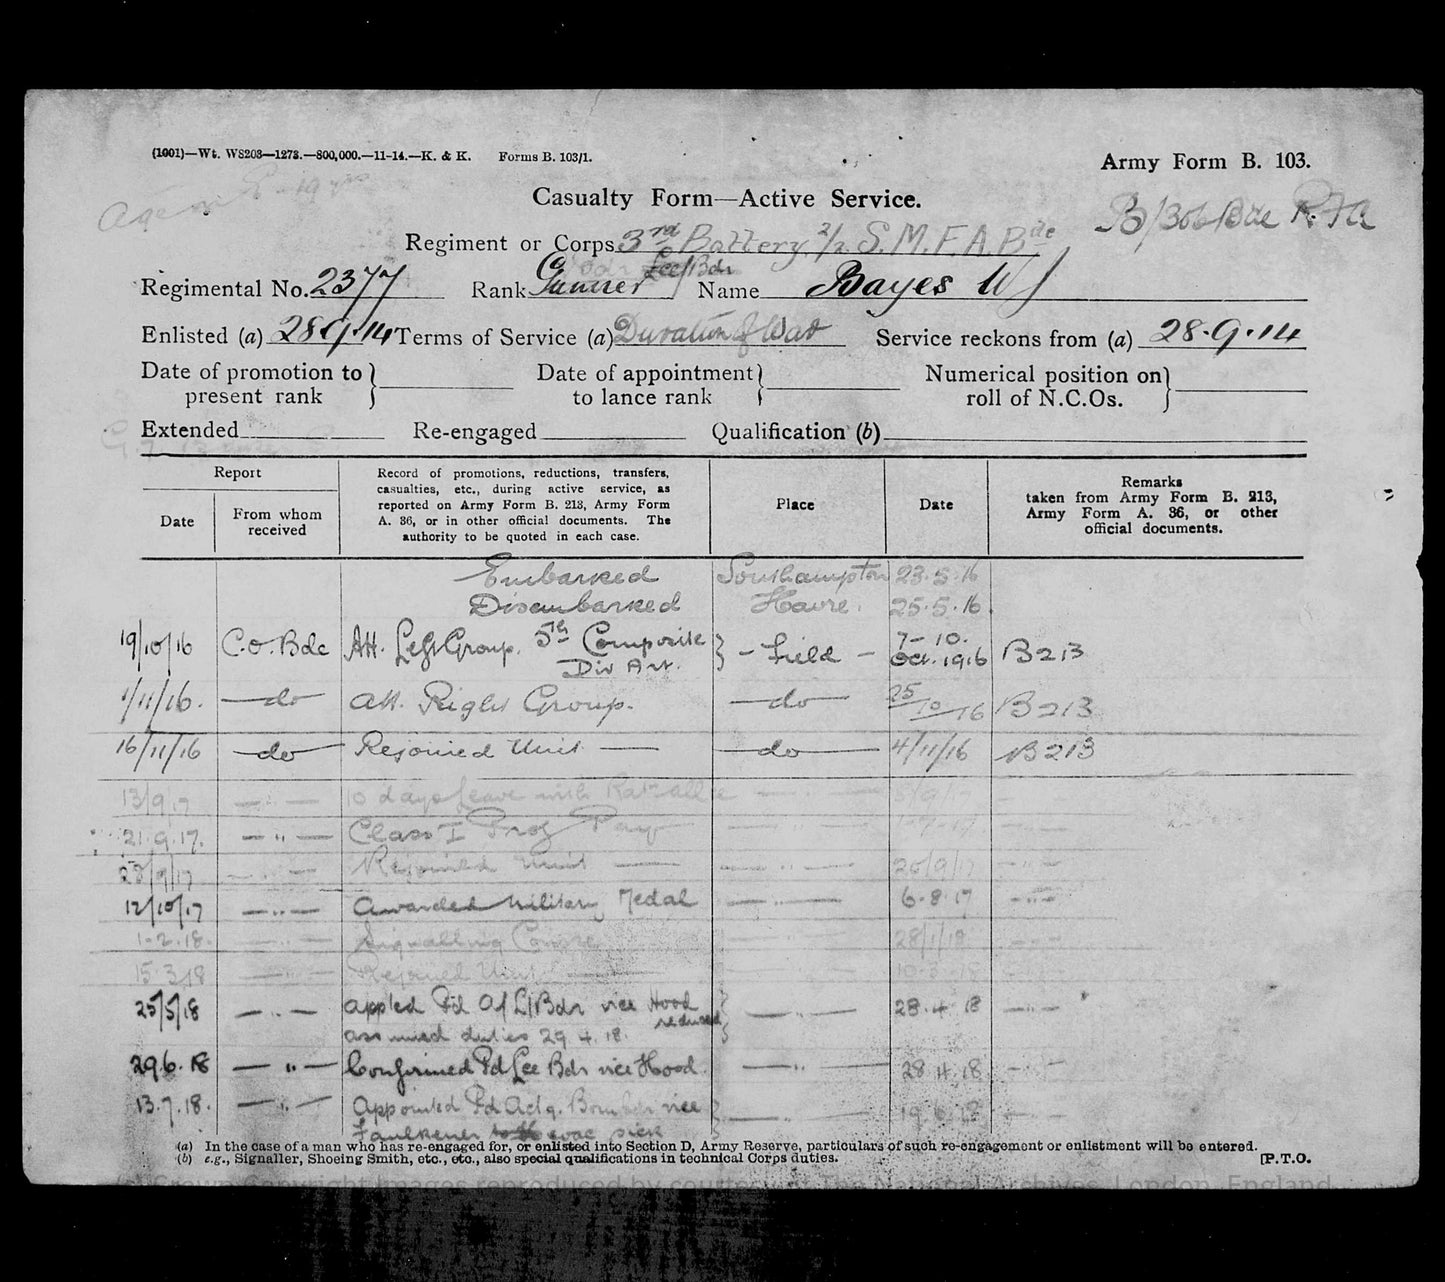 (1001)—Wt. W8203—1273.—800,000.—11-14.—K. & K. Forms B. 103/1.
Army Form B. 103.
Casualty Form—Active Service.
B/306 Bde R.F.A
Regiment or Corps 3rd Battery 2/2 S.M.F.A. Bde
Lce/Bdr
Regimental No. 2377 Rank Gunner Name Bayes W J
Enlisted (a) 28.9.14 Terms of Service (a) Duration of War Service reckons from (a) 28.9.14
Date of promotion to present rank
Date of appointment to lance rank
Numerical position on roll of N.C.Os.
Extended Re-engaged Qualification (b)
Report
Date
From whom received
Record of promotions, reductions, transfers,
casualties, etc., during active service, as
reported on Army Form B. 213, Army Form
A. 36, or in other official documents. The
authority to be quoted in each case.
Place
Date
Remarks
taken from Army Form B. 213,
Army Form A. 36, or other
official documents.
Embarked Southampton 23.5.16
Disembarked Havre. 25.5.16.
19/10/16 C.O. Bde Att. Left Group. 5th Composite Div Art. - Field - 7-10. Oct. 1916 B213
1/11/16. do Att. Right Group. do 25/10/16 B213
16/11/16 do Rejoined Unit do 4/11/16 B213
13/9/17 — " — 10 days leave with — " —
21.9.17. — " — Class I Prof Pay — " —
28/9/17 — " — Rejoined Unit — " — 26/9/17 — " —
12/10/17 — " — Awarded Military Medal — " — 6.8.17 — " —
1-2-18. — " — Signalling Course — " — 28/1/18 — " —
15.3.18 — " — Rejoined Unit — " — 10.3.18
25/5/18 — " — Appted Pd A/L/Bdr vice Hood reduced — " — 28.4.18 — " —
assumed duties 29.4.18.
29.6.18 — " — Confirmed Pd Lce Bdr vice Hood. — " — 28.4.18 — " —
13.7.18. — " — Appointed Pd Actg. Bombdr vice — " — 19.6.18 — " —
Faulkener evac sick
(a) In the case of a man who has re-engaged for, or enlisted into Section D, Army Reserve, particulars of such re-engagement or enlistment will be entered.
(b) e.g., Signaller, Shoeing Smith, etc., etc., also special qualifications in technical Corps duties.
[P.T.O.
Crown Copyright Images reproduced by courtesy of The National Archives, London, England.